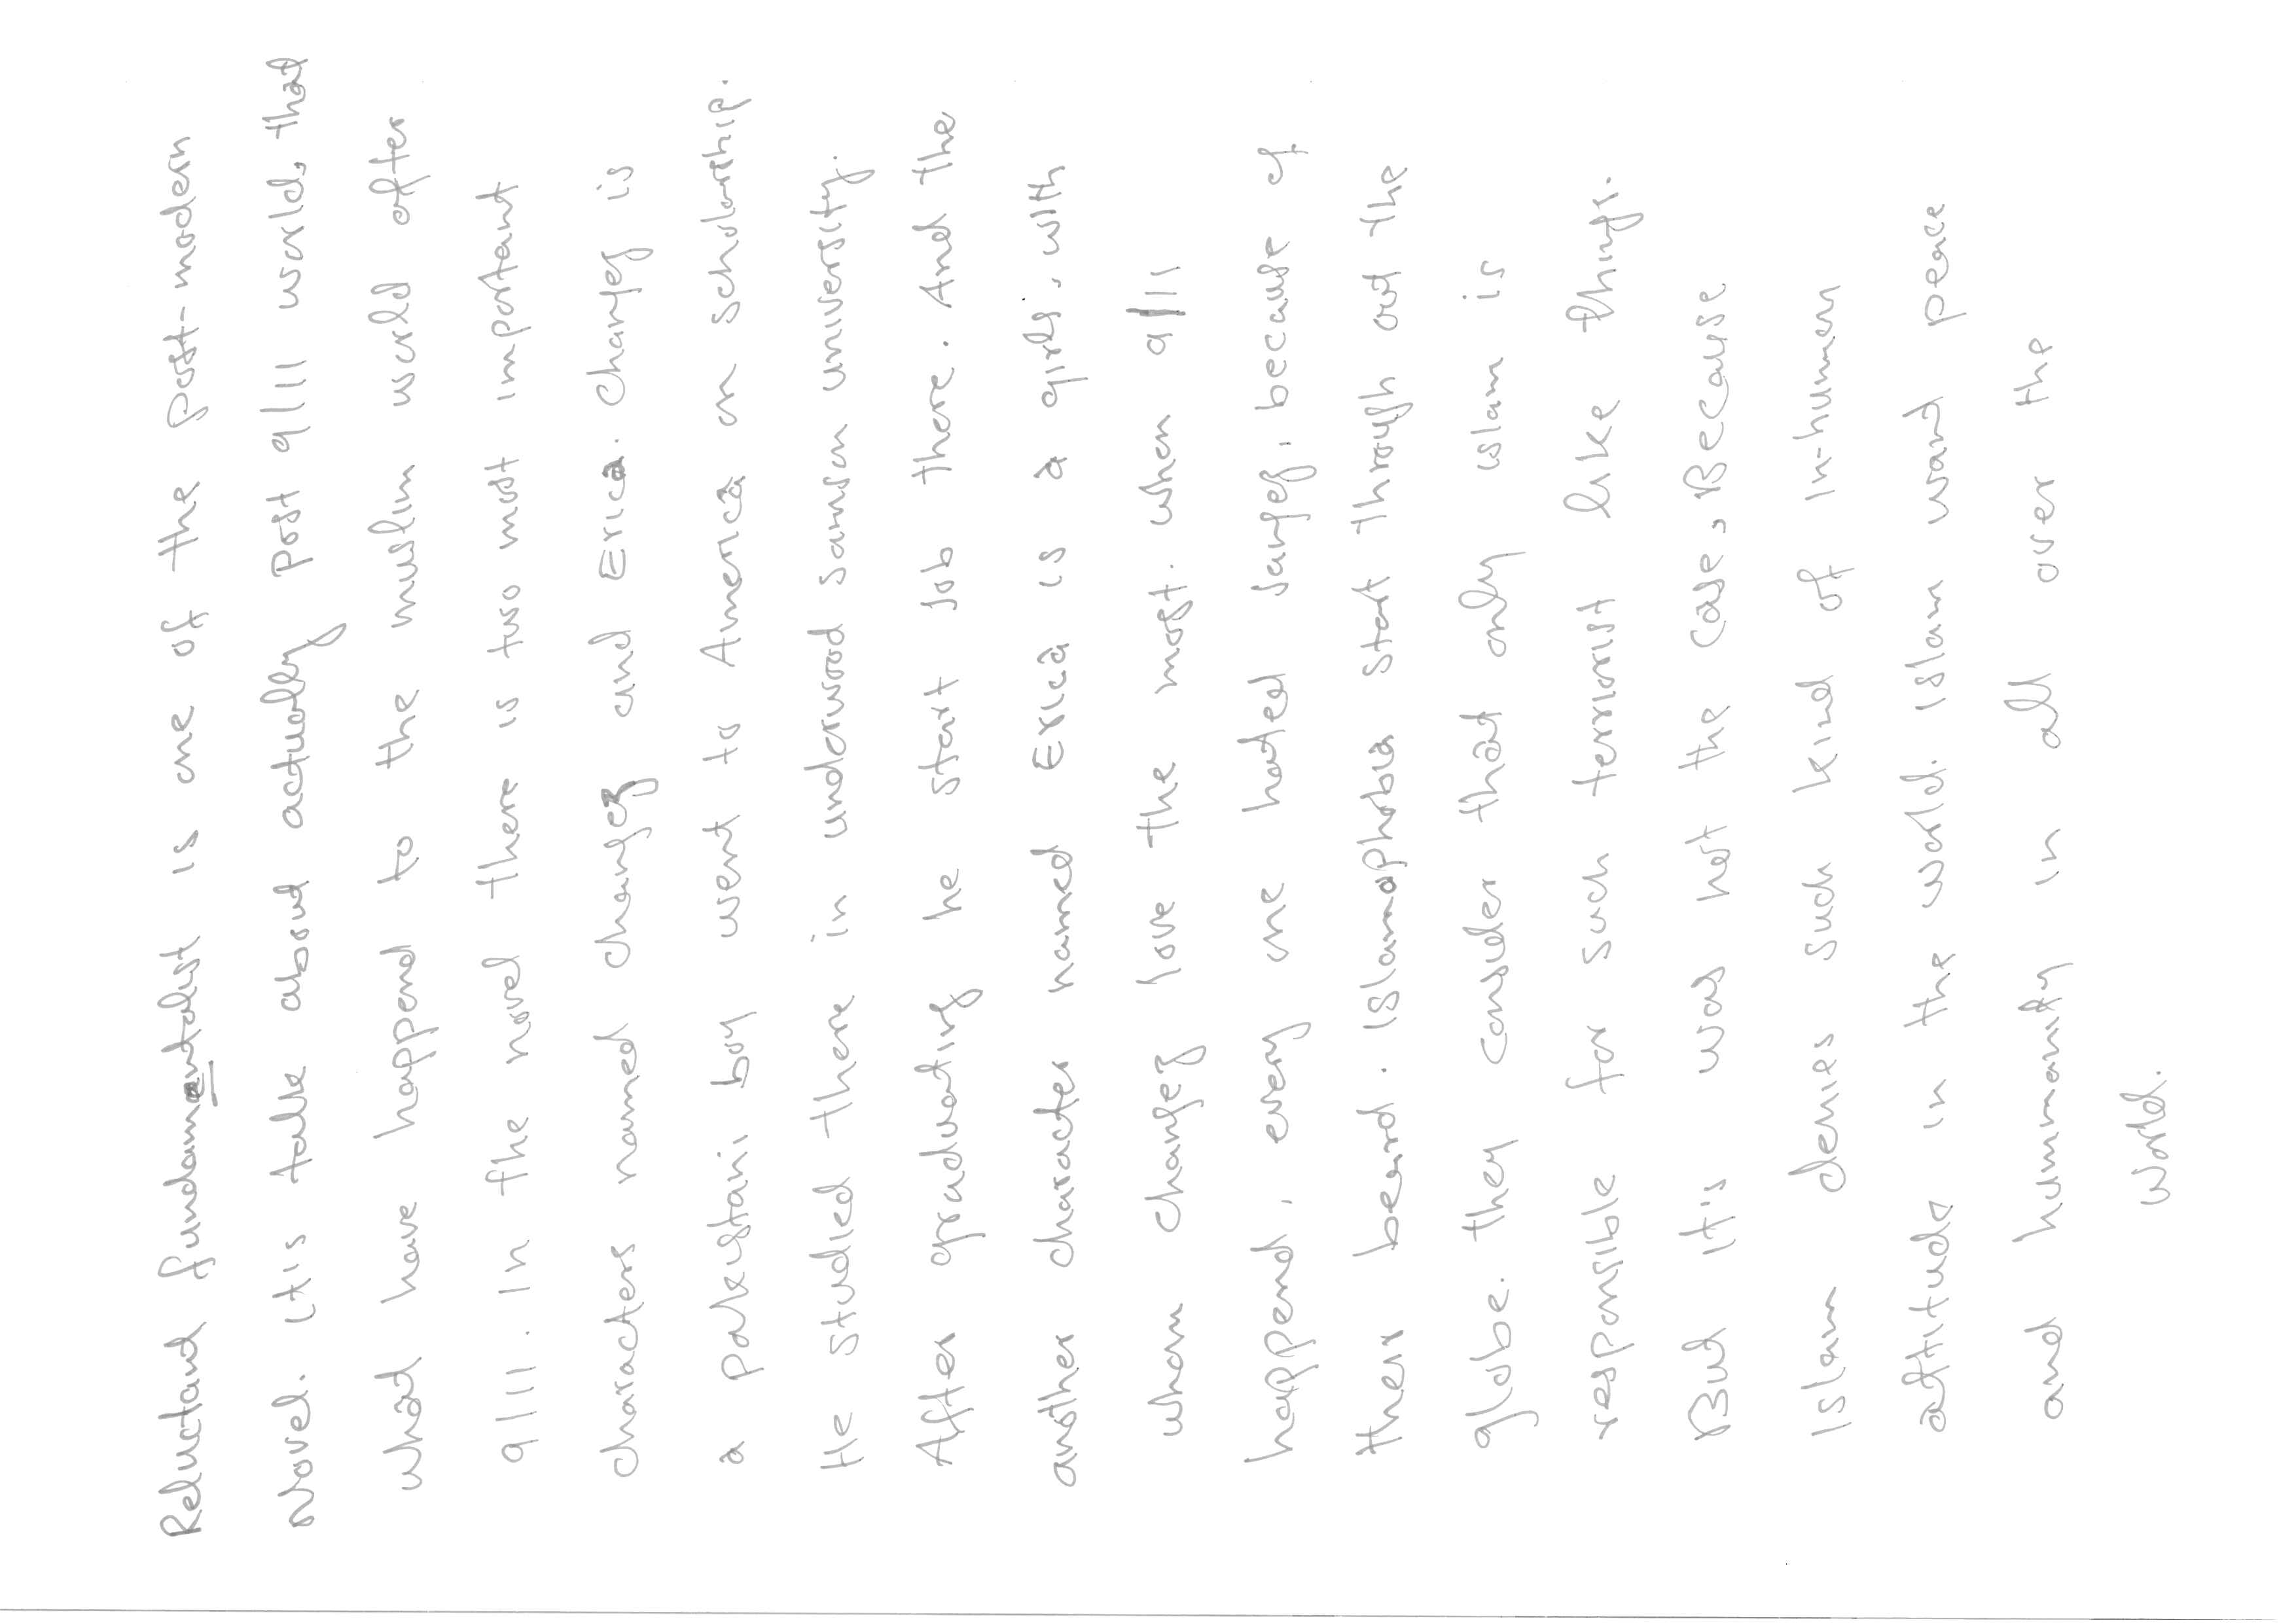 Reluctant fundamentalist is one of the post-modern
Novel. It's talk about actually post 9/11 world, that
what have happend to the muslim world after
9/11. In the novel there is two most important
characters named changez and Erica. Changez is
a pakistani boy went to America on scholarship.
He studied there in underwood samson university.
After graduating he start Job there. And the
another character named Erica is a girls. with
whom changez love the most. when 9/11
happend, every one hated Jangez, because of
their beard. Islamophobia start through out the
globe. they consider that only islam is
responsible for such terriorist like things.
But it's was not the case, Because
Islam denies such kind of in-human
attitude in the world. Islam want peace
and hummanity in all over the
world.